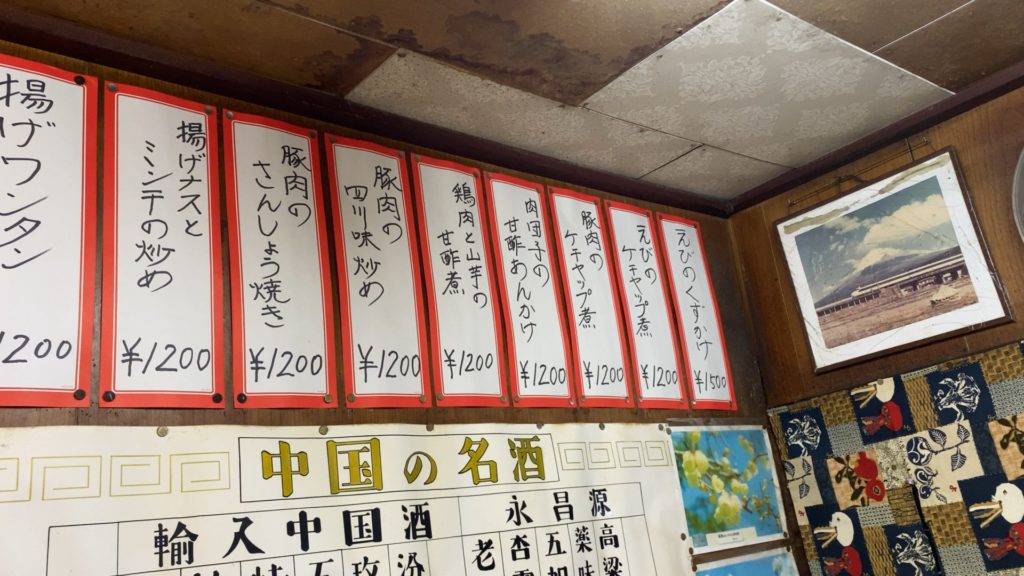 えびのくずかけ
¥1500
えびの
ケチャップ煮
¥1200
豚肉の
ケチャップ煮
¥1200
肉団子の
甘酢あんかけ
¥1200
鶏肉と山芋の
甘酢煮
¥1200
豚肉の
四川味炒め
¥1200
豚肉の
さんしょう焼き
¥1200
揚げナスと
ミンチの炒め
¥1200
揚げワンタン
1200
中国の名酒
輸入中国酒
永昌源
高
薬味
五
杏
老